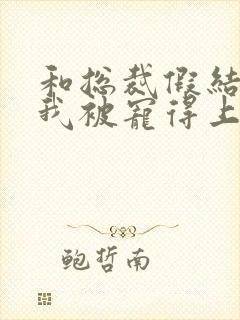 和总裁假结
我被宠得上
鲍哲南